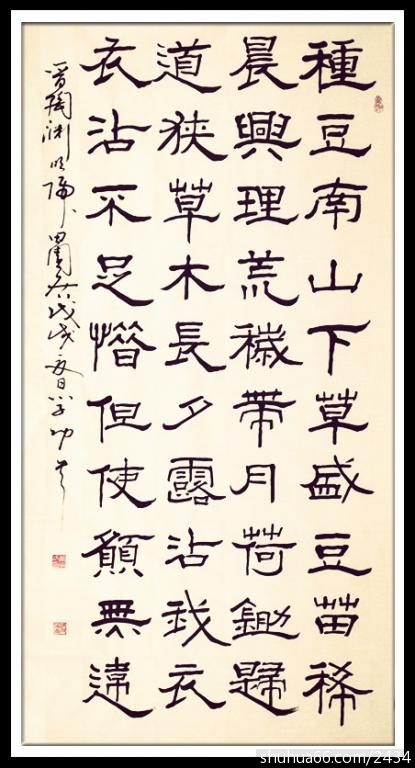 種豆南山下草盛豆苗稀
晨興理荒穢帶月荷鋤歸
道狹草木長夕露沾我衣
衣沾不足惜但使願無違
晋陶渊明歸田園居戊戌日
shuhua66.com/2434